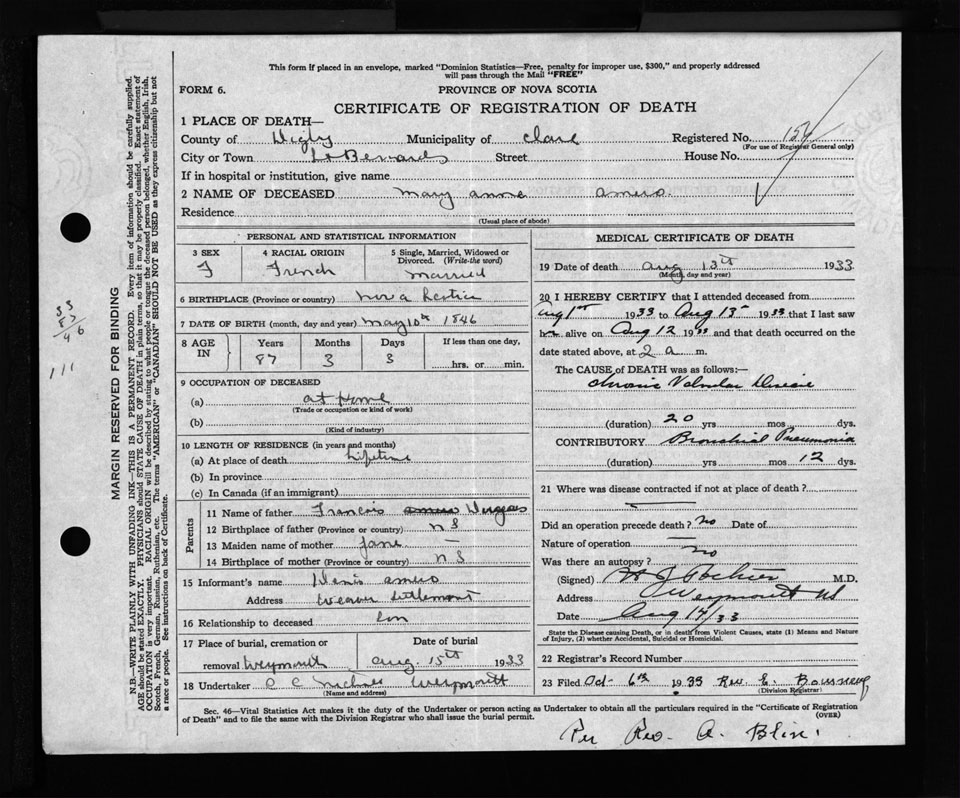 This form if placed in an envelope, marked "Dominion Statistics—Free, penalty for improper use, $300," and properly addressed
will pass through the Mail "FREE"
FORM 6. PROVINCE OF NOVA SCOTIA
CERTIFICATE OF REGISTRATION OF DEATH
1 PLACE OF DEATH—
County of Digby Municipality of Clare Registered No. 154
(For use of Registrar General only)
City or Town St Bernards Street House No.
If in hospital or institution, give name
2 NAME OF DECEASED Mary Anne Amero
Residence
(Usual place of abode)
PERSONAL AND STATISTICAL INFORMATION
3 SEX 4 RACIAL ORIGIN 5 Single, Married, Widowed or
Divorced. (Write the word)
F French Married
6 BIRTHPLACE (Province or country) Nova Scotia
7 DATE OF BIRTH (month, day and year) May 10th 1846
8 AGE IN Years Months Days If less than one day,
87 3 3 hrs. or min.
9 OCCUPATION OF DECEASED
(a) At Home
(Trade or occupation or kind of work)
(b)
(Kind of industry)
10 LENGTH OF RESIDENCE (in years and months)
(a) At place of death Lifetime
(b) In province
(c) In Canada (if an immigrant)
Parents
11 Name of father Francois
12 Birthplace of father (Province or country) N S
13 Maiden name of mother Jane —
14 Birthplace of mother (Province or country) N S
15 Informant's name Denis Amero
Address Weaver Settlement
16 Relationship to deceased Son
17 Place of burial, cremation or Date of burial
removal Weymouth Aug 15th 1933
18 Undertaker Weymouth
(Name and address)
MEDICAL CERTIFICATE OF DEATH
19 Date of death Aug 13th 1933
(Month, day and year)
20 I HEREBY CERTIFY that I attended deceased from
Aug 1st 1933 to Aug 13th 1933 that I last saw
her alive on Aug 12 1933 and that death occurred on the
date stated above, at 2 a m.
The CAUSE of DEATH was as follows:—
Chronic Valvular Disease
(duration) 20 yrs mos dys.
CONTRIBUTORY Bronchial Pneumonia
(duration) yrs mos 12 dys.
21 Where was disease contracted if not at place of death?
Did an operation precede death? No Date of
Nature of operation —
Was there an autopsy? no
(Signed) M.D.
Address Weymouth NS
Date Aug 14/33
State the Disease causing Death, or in death from Violent Causes, state (1) Means and Nature
of Injury, (2) whether Accidental, Suicidal or Homicidal.
22 Registrar's Record Number
23 Filed Oct 6th 1933 Rev. E.
(Division Registrar)
Sec. 46—Vital Statistics Act makes it the duty of the Undertaker or person acting as Undertaker to obtain all the particulars required in the "Certificate of Registration
of Death" and to file the same with the Division Registrar who shall issue the burial permit. (OVER)
Per Rev. A. Blin.
MARGIN RESERVED FOR BINDING
N.B.—WRITE PLAINLY WITH UNFADING INK—THIS IS A PERMANENT RECORD. Every item of information should be carefully supplied.
AGE should be stated EXACTLY. PHYSICIANS should STATE CAUSE OF DEATH in plain terms, so that it may be properly classified. Exact statement of
OCCUPATION is very important. RACIAL ORIGIN will be described by stating to what people or tongue the deceased person belonged, whether English, Irish,
Scotch, French, German, Russian, Ruthenian, etc. The terms "AMERICAN" or "CANADIAN" SHOULD NOT BE USED as they express citizenship but not
a race or people. See instructions on back of Certificate.
111